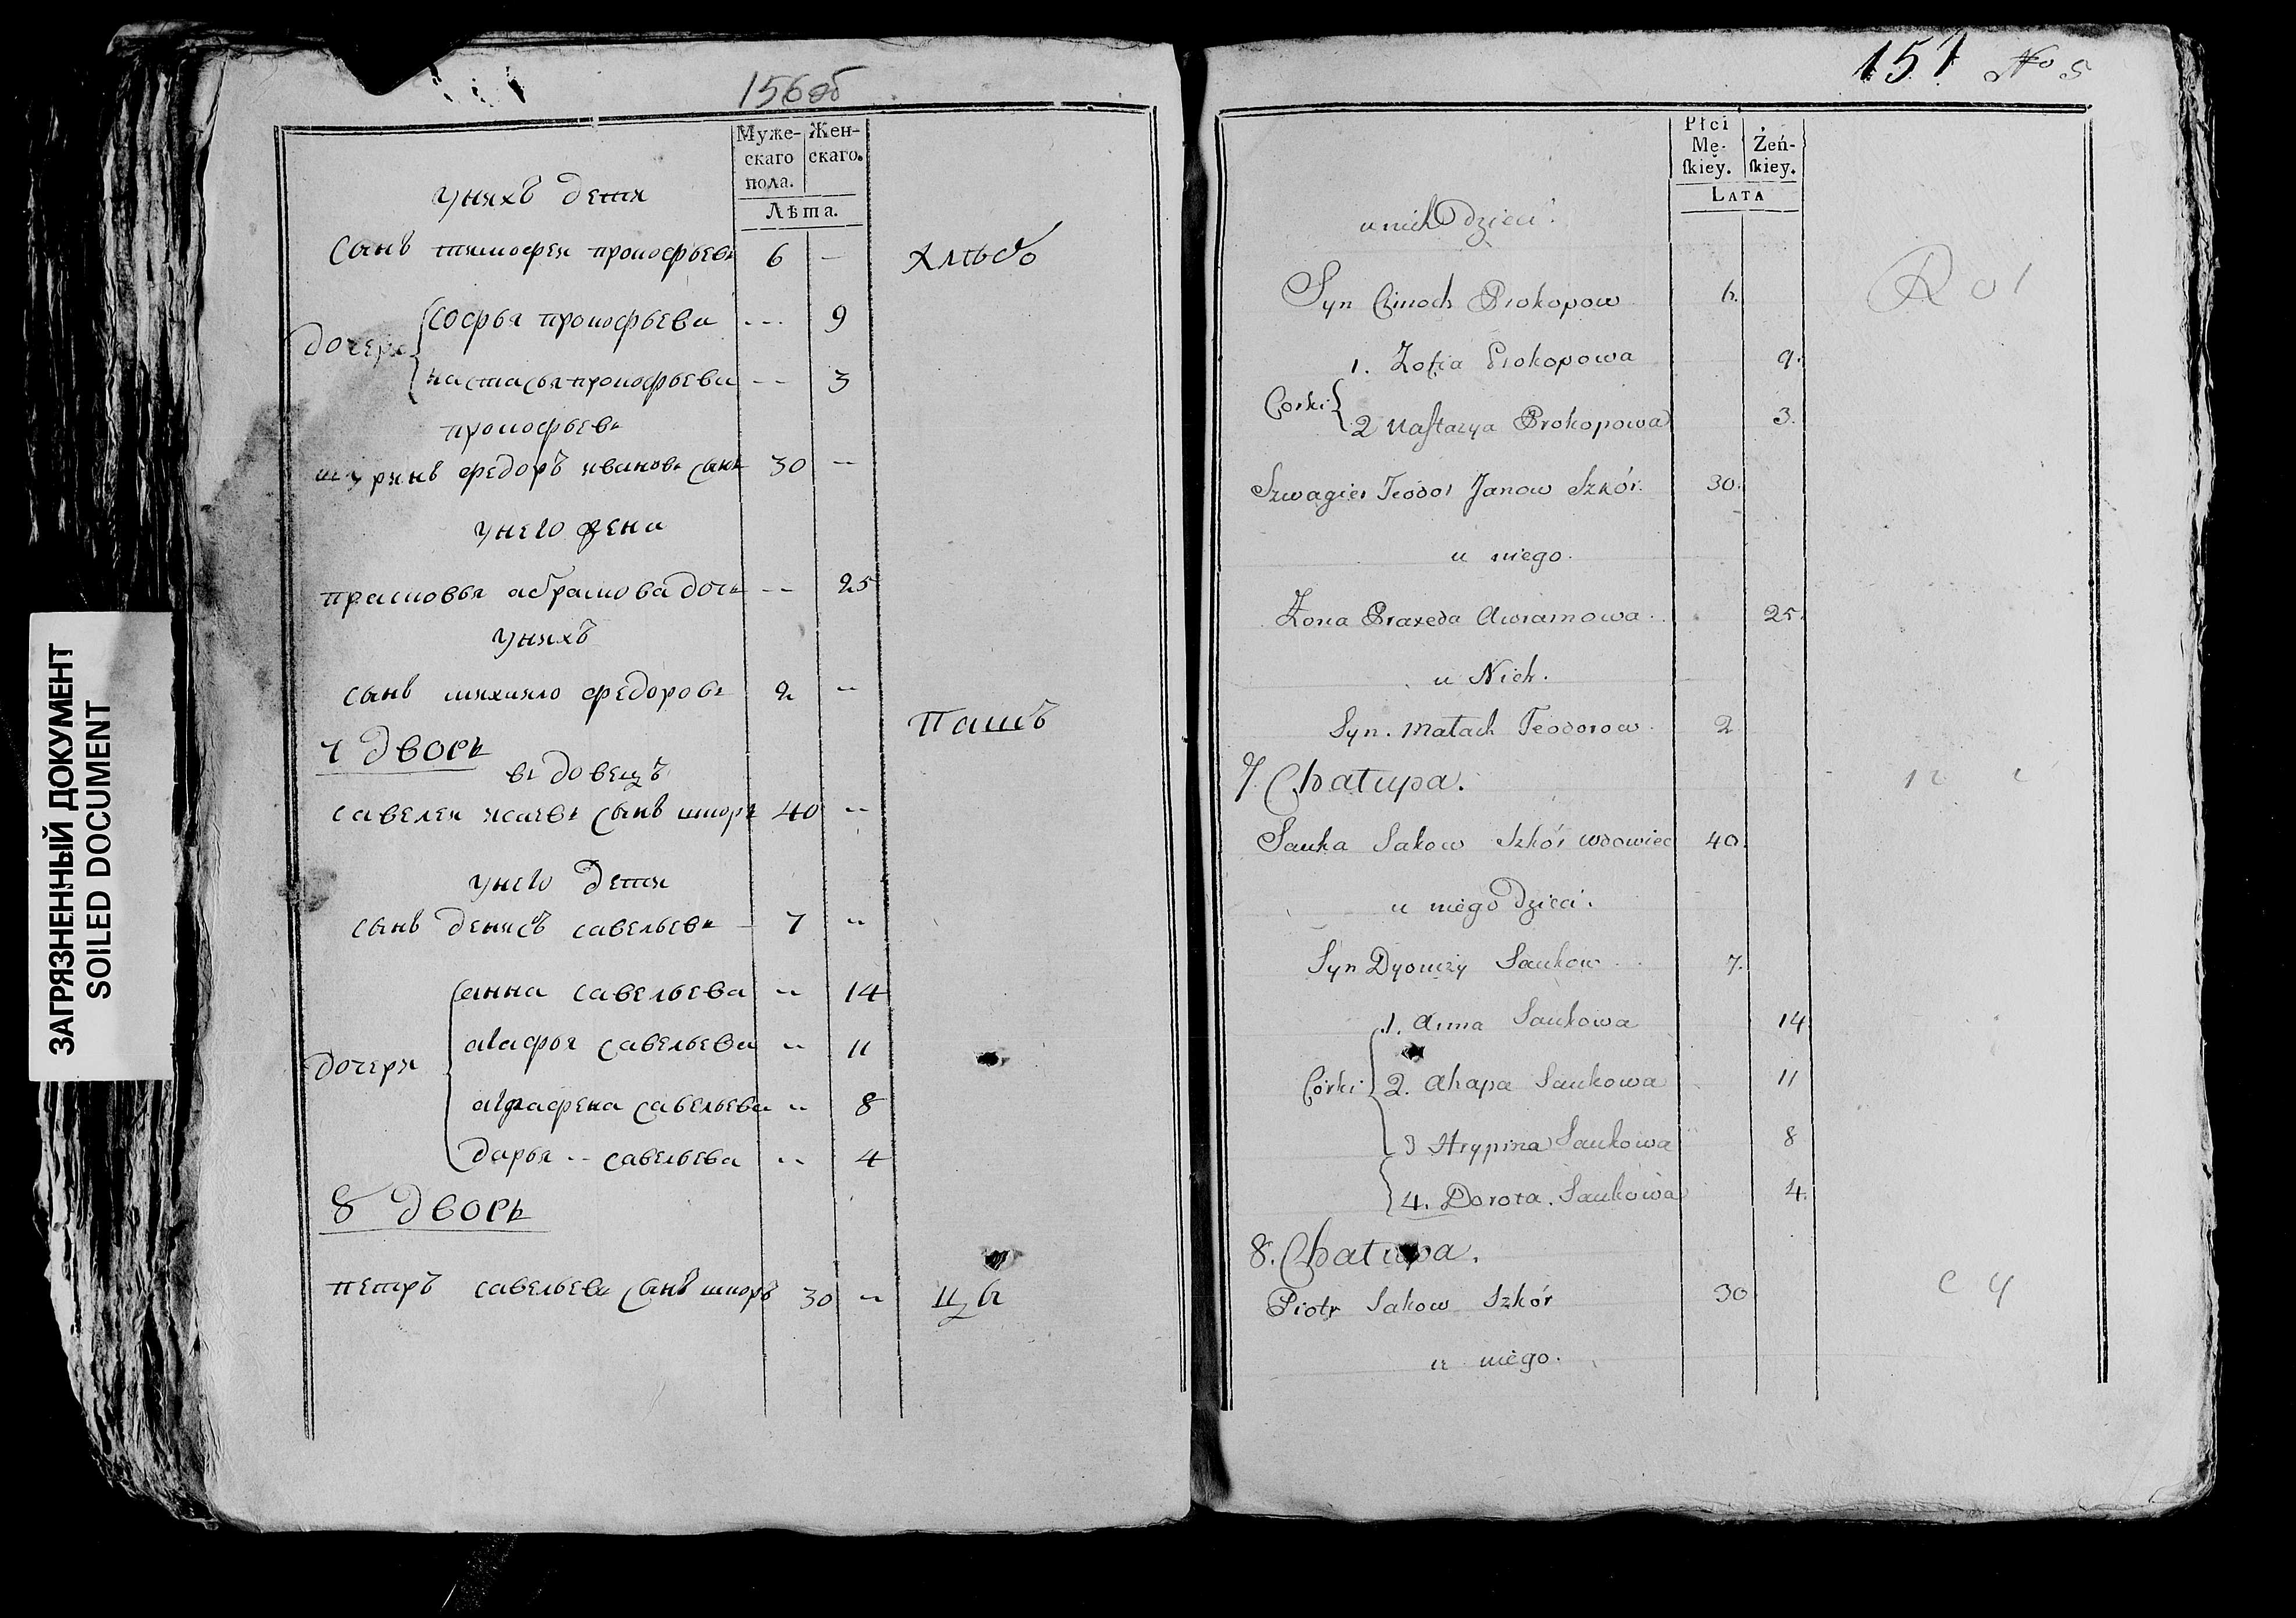 ЗАГРЯЗНЕННЫЙ ДОКУМЕНТ
SOILED DOCUMENT
156об
Муже-
скаго
пола.
Жен-
скаго.
Лѣта.
у нихъ дети
сынъ тимофеи прокофьевъ 6 —
дочери
софья прокофьева --- 9
настасья прокофьева -- 3
прокофьевъ
шуринъ федоръ ивановъ сынъ 30 --
у него жена
прасковья абрамова дочь -- 25
у нихъ
сынъ михаило федоровъ 2 --
7 дворъ
вдовецъ
савелеи исаевъ сынъ шкоръ 40 --
у него дети
сынъ денисъ савельевъ 7 --
дочери
анна савельева -- 14
агафья савельева -- 11
аграфена савельева -- 8
дарья -- савельева -- 4
8 дворъ
петръ савельевъ сынъ шкоръ 30 --
хлѣбо
пашъ
цы
157 No 5
Płci
Mę-
ſkiey.
Żeń-
ſkiey.
LATA
u nich Dzieci.
Syn Cimoch Prokopow 6.
Corki
1. Zofia Prokopowa 9.
2 Naſtazya Prokopowa 3.
Szwagier Teodor Janow Szkór. 30.
u niego.
Żona Praxeda Awramowa. 25.
u Nich.
Syn. Matach Teodorow. 2
7. Chatupa.
Sauka Sakow Szkór wdowiec 40.
u niego Dzieci.
Syn Dyonizy Saukow 7.
Córki
1. Anna Saukowa 14
2. Ahapa Saukowa 11
3 Hrypina Saukowa 8
4. Dorota. Saukowa 4.
8. Chatupa.
Piotr Sakow Szkór 30
u niego.